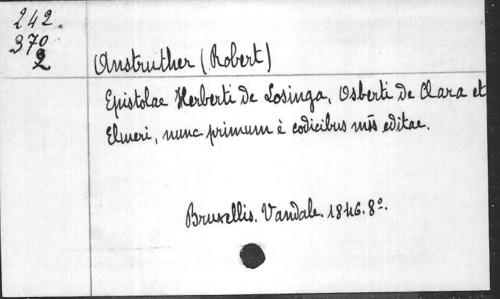 242.
370
2
Anstruther (Robert)
Epistolae Herberti de Losinga, Osberti de Clara et
Elmeri, nunc primum è codicibus mss editae.
Bruxellis. Vandale. 1846. 8º.